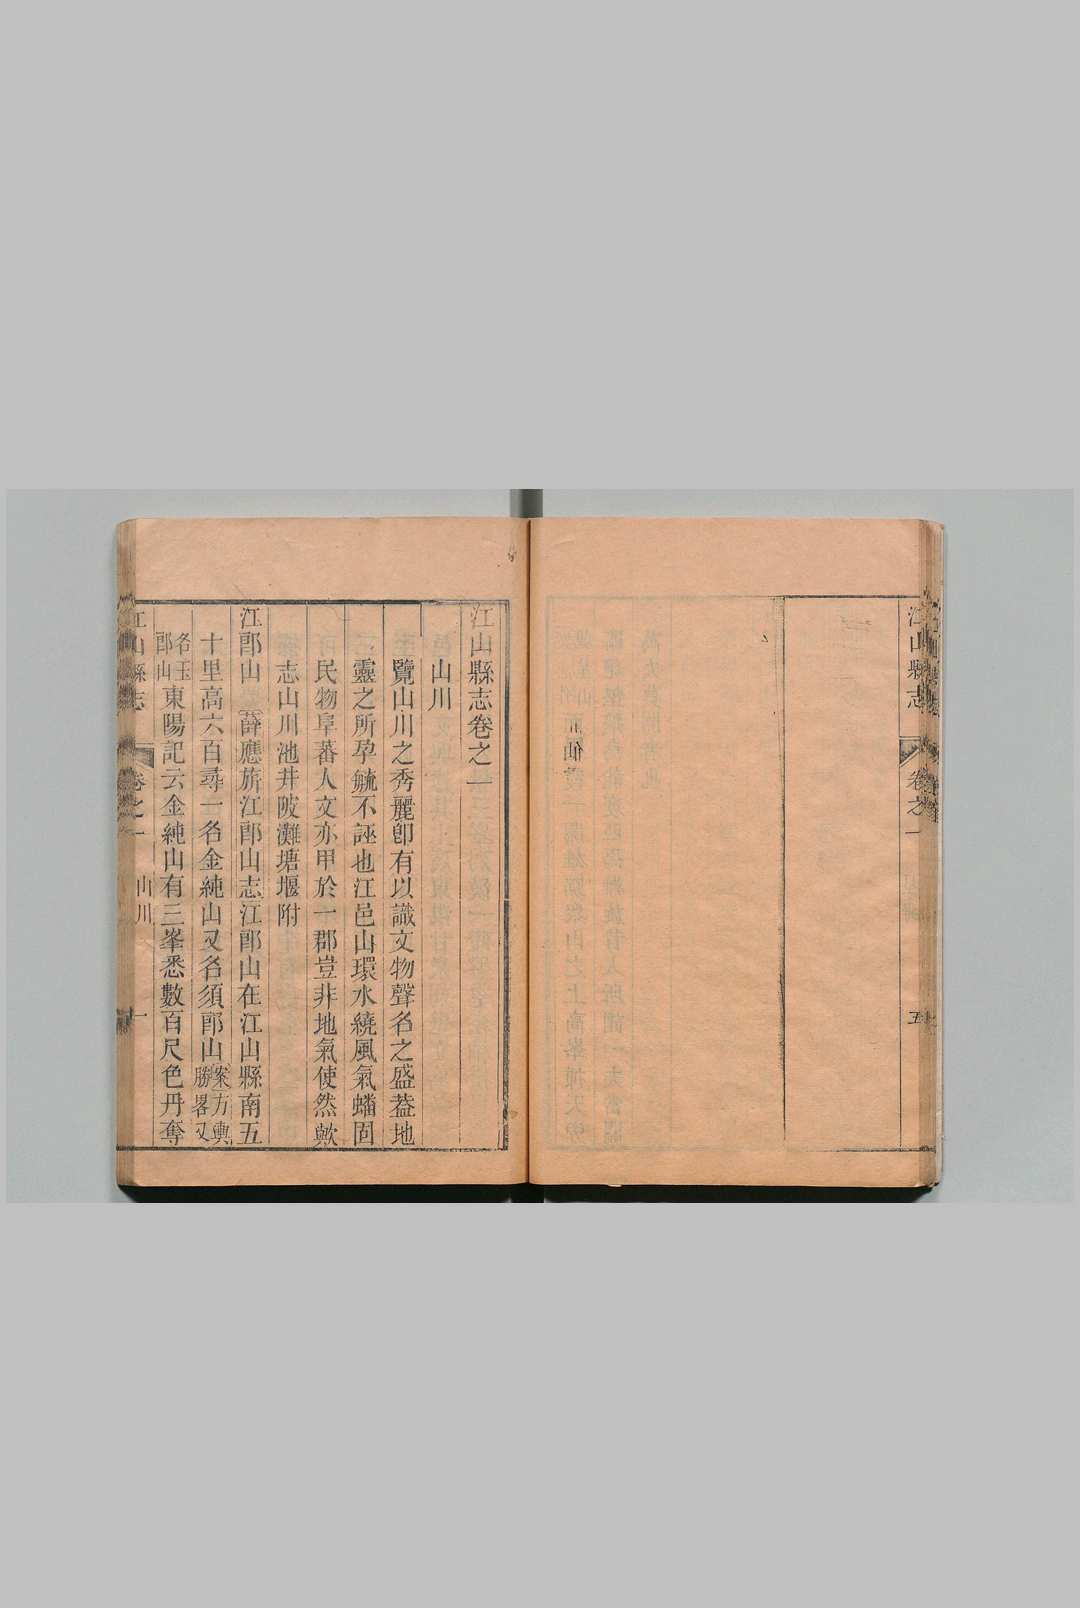 江山縣志
卷之一
五
江山縣志卷之一
山川
覽山川之秀麗卽有以識文物聲名之盛葢地
靈之所孕毓不誣也江邑山環水繞風氣蟠固
民物阜蕃人文亦甲於一郡豈非地氣使然歟
志山川池井陂灘塘堰附
江郎山 薛應旂江郎山志江郎山在江山縣南五
十里高六百尋一名金純山又名須郎山案方輿勝畧又
名玉郎山東陽記云金純山有三峯悉數百尺色丹奪
江山縣志
卷之一
山川
一